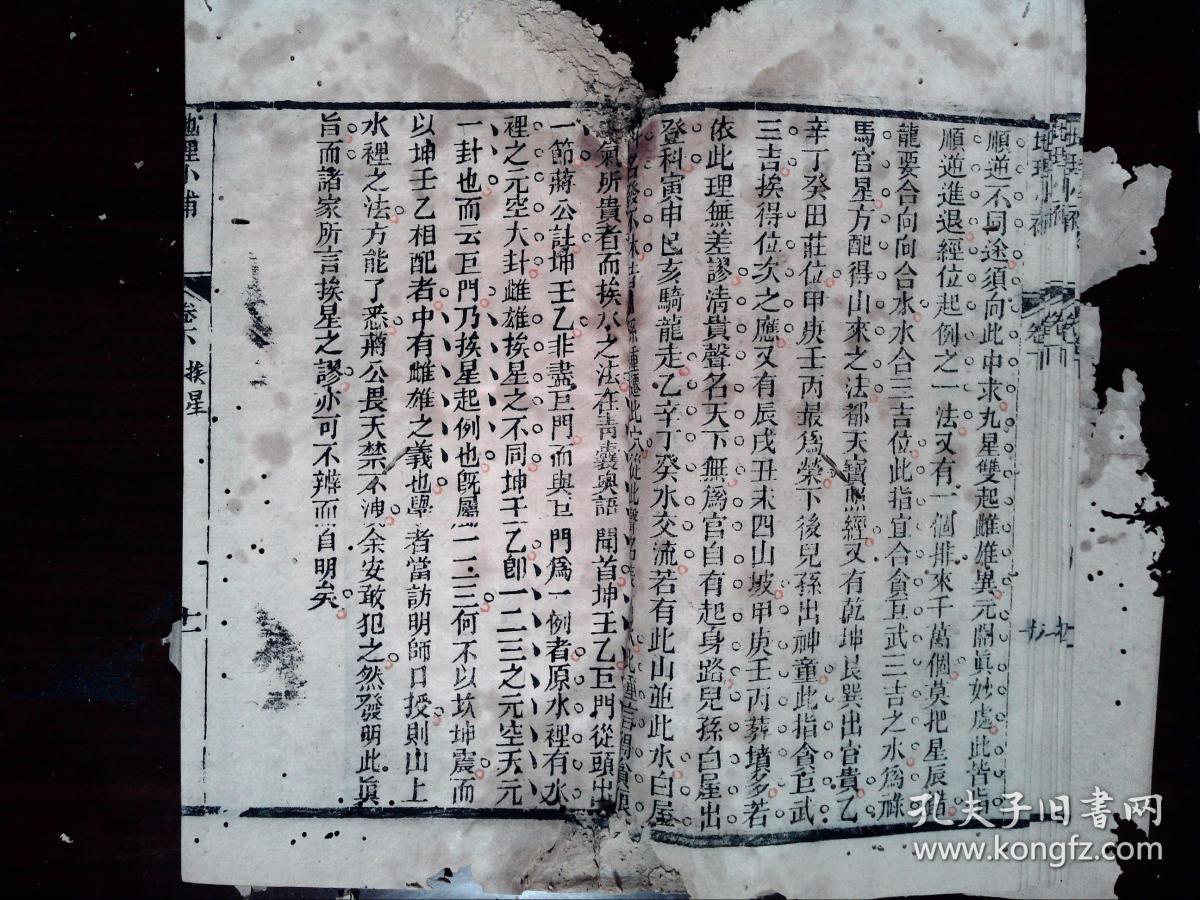 順逆不同途須向此中求九星雙起雌雄異元關眞妙處此皆指
順逆進退經位起例之一法又有一個排來千萬個莫把星辰錯
龍要合向向合水水合三吉位此指宜合貪巨武三吉之水爲祿
馬官星方配得山來之法都天寶照經又有乾坤艮巽出官貴乙
辛丁癸田莊位甲庚壬丙最爲榮下後兒孫出神童此指貪巨武
三吉挨得位次之應又有辰戌丑未四山坡甲庚壬丙葬墳多若
依此理無差謬清貴聲名天下無爲官自有起身路兒孫白屋出
登科寅申巳亥騎龍走乙辛丁癸水交流若有此山並此水白屋
科名發不休昔日孫鍾
此穴從此
氣所貴者而挨水之法在青囊奧語開首坤壬乙巨門從頭出
一節蔣公註坤壬乙非盡巨門而與巨門爲一例者原水裡有水
裡之元空大卦雌雄挨星之不同坤壬乙卽一二三之元空天元
一封也而云巨門乃挨星起例也旣屬一二三何不以坎坤震而
以坤壬乙相配者中有雌雄之義也學者當訪明師口授則山上
水裡之法方能了悉蔣公畏天禁不洩余安敢犯之然發明此眞
旨而諸家所言挨星之謬亦可不辨而自明矣
地理小補
卷下
挨星
十一
地理小補
孔夫子旧书网
www.kongfz.com